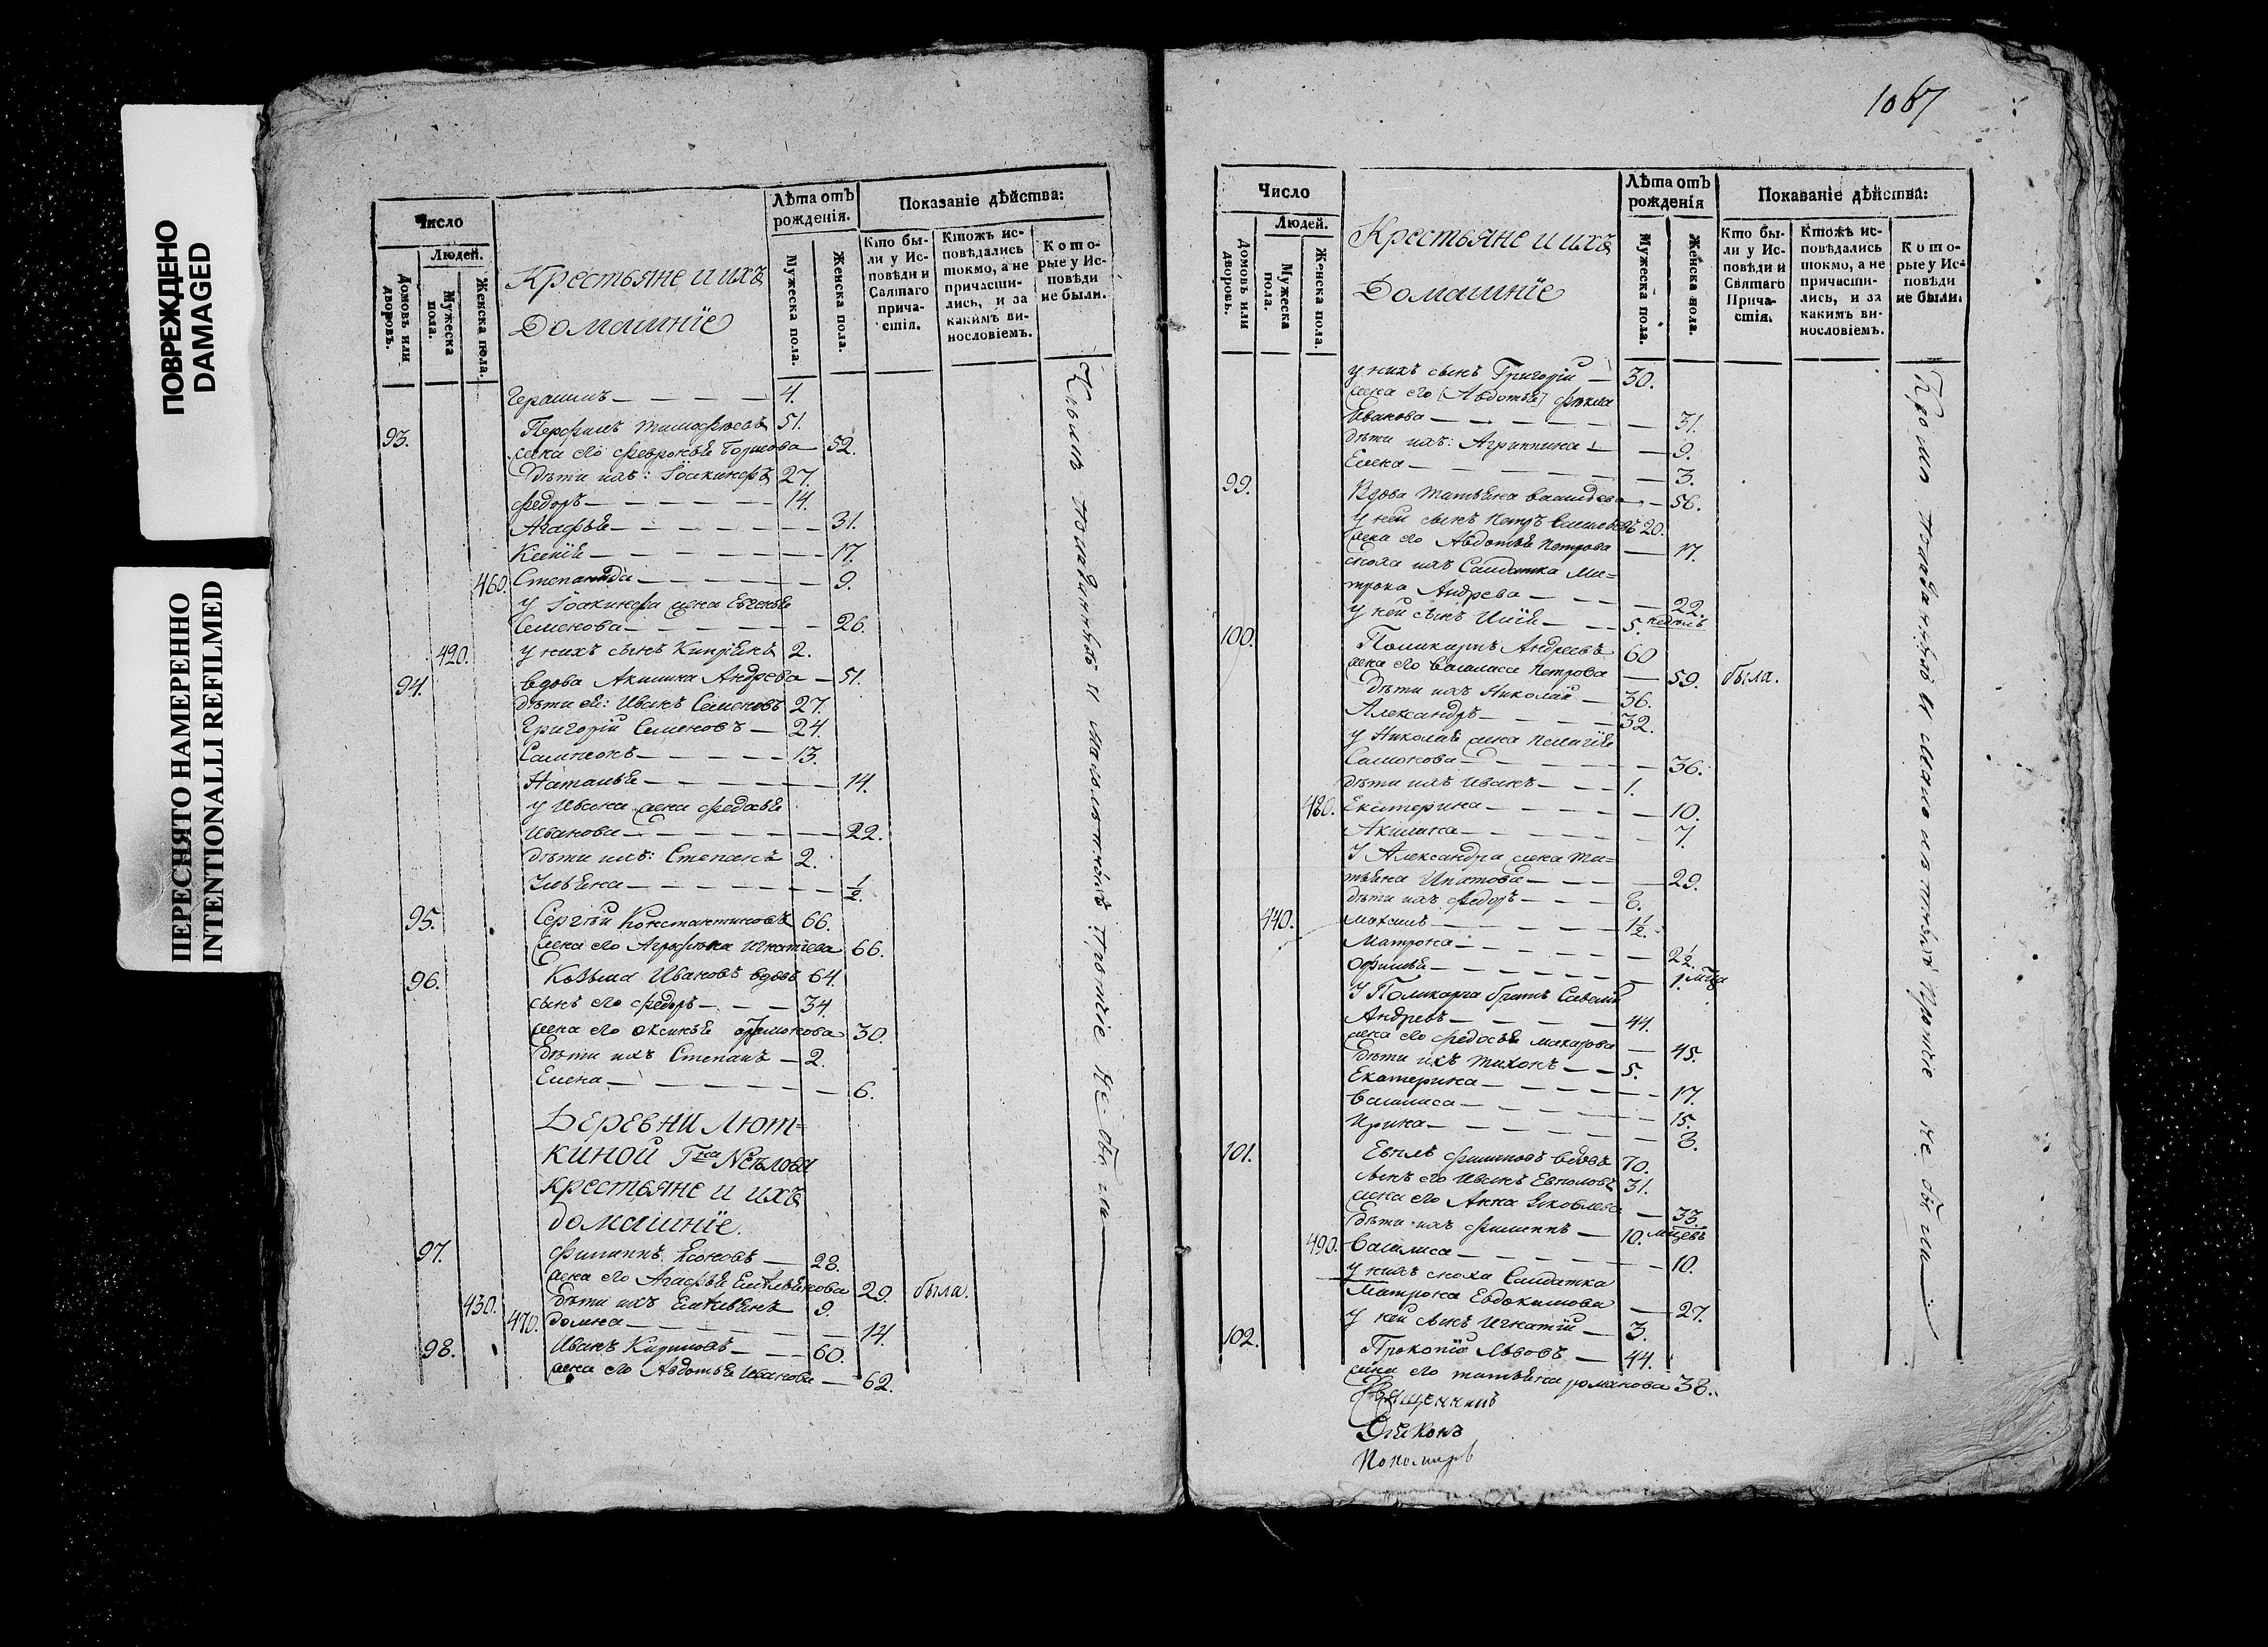 ПОВРЕЖДЕНО
DAMAGED
ПЕРЕСНЯТО НАМЕРЕННО
INTENTIONALLI REFILMED
Число
Людей.
Домовъ или дворовъ.
Мужеска пола.
Женска пола.
Крестьяне и ихъ
Домашнїе
Лѣта отъ
рожденїя.
Мужеска пола.
Женска пола.
Показанїе дѣйства:
Кто бы-
ли у Ис-
повѣди и
Святаго
прича-
стїя.
Ктожъ ис-
повѣдались
токмо, а не
причасти-
лись, и за
какимъ ви-
нословїемъ.
Кото-
рые у Ис-
повѣди
не были.
Герасимъ — 4.
93. Перфилъ Тимофѣевъ 51.
жена его Февронья — 52.
дѣти ихъ: Їоакинфъ 27.
Федоръ — 14.
Агафья — 31.
Ксенїя — 17.
460. Степанида — 9.
у Їоакинфа жена Евгенья
Семенова — 26.
420. у нихъ сынъ Кипрїянъ 2.
94. вдова Акилина Андреева — 51.
дѣти ея: Иванъ Семеновъ 27.
Григорїй Семеновъ — 24.
Сампсонъ — 13.
Наталья — 14.
у Ивана жена Федосья
Иванова — 22.
дѣти ихъ: Степанъ 2.
Улїяна — 1/2.
95. Сергѣй Константиновъ 66.
жена его Агрофѣна Игнатїева 66.
96. Козьма Ивановъ вдовъ 64.
сынъ его Федоръ — 34.
жена его Оксинья 30.
дѣти ихъ Степанъ — 2.
Елена — 6.
Деревни Лют-
киной Гна
крестьяне и ихъ
домашнїе.
97. Филиппъ — 28.
жена его Агафья Емельянова 29. была.
430. дѣти ихъ Емельянъ 9.
470. Домна — 14.
98. Иванъ Кириловъ — 60.
жена его Авдотья Иванова — 62.
Кромѣ показанной и малолѣтныхъ Протчїе не были
1067
Число
Людей.
Домовъ или дворовъ.
Мужеска пола.
Женска пола.
Крестьяне и ихъ
Домашнїе
Лѣта отъ
рожденїя
Мужеска пола.
Женска пола.
Показанїе дѣйства:
Кто бы-
ли у Ис-
повѣди и
Святаго
Прича-
стїя.
Ктожъ ис-
повѣдались
токмо, а не
причасти-
лись, и за
какимъ ви-
нословїемъ.
Кото-
рые у Ис-
повѣди
не были.
у нихъ сынъ Григорїй — 30.
жена его [Авдотья] Фекла
Иванова — 31.
дѣти ихъ: Агриппина — 9.
Елена — 3.
99. Вдова Татьяна Васильева — 56.
у ней сынъ Петръ 20.
жена его Авдотья Петрова — 17.
сноха ихъ Салдатка Ма-
трона Андреева — 22.
у ней сынъ Илїя — 5. недѣль
100. Поликарпъ Андреевъ 60
жена его Василиса Петрова — 59. была.
дѣти ихъ Николай — 36.
Александръ — 32.
у Николая жена Пелагїя
Самонова — 36.
дѣти ихъ Иванъ — 1.
480. Екатерина — 10.
Акилина — 7.
У Александра жена Та-
тьяна Ипатова — 29.
дѣти ихъ Федоръ — 8.
440. — 1 1/2.
Матрона — 2 1/2.
Офимья — 1. мца
У Поликарпа братъ Савелїй
Андреевъ — 44.
жена его Федосья Макарова — 45.
дѣти ихъ Тихонъ — 5.
Екатерина — 17.
Василиса — 15.
Ирина — 8.
101. Евплъ Филиповъ вдовъ 70.
сынъ его Иванъ Евпловъ 31.
жена его Анна Яковлева — 33.
дѣти ихъ Филиппъ — 10. мцевъ
490. Василиса — 10.
у нихъ сноха Салдатка
Матрона Евдокимова — 27.
у ней сынъ Игнатїй — 3.
102. Прокопїй Львовъ — 44.
жена его Татьяна Романова 38.
Священникъ
Дїяконъ
Пономарь
Кромѣ показанной и малолѣтныхъ Протчїе не были